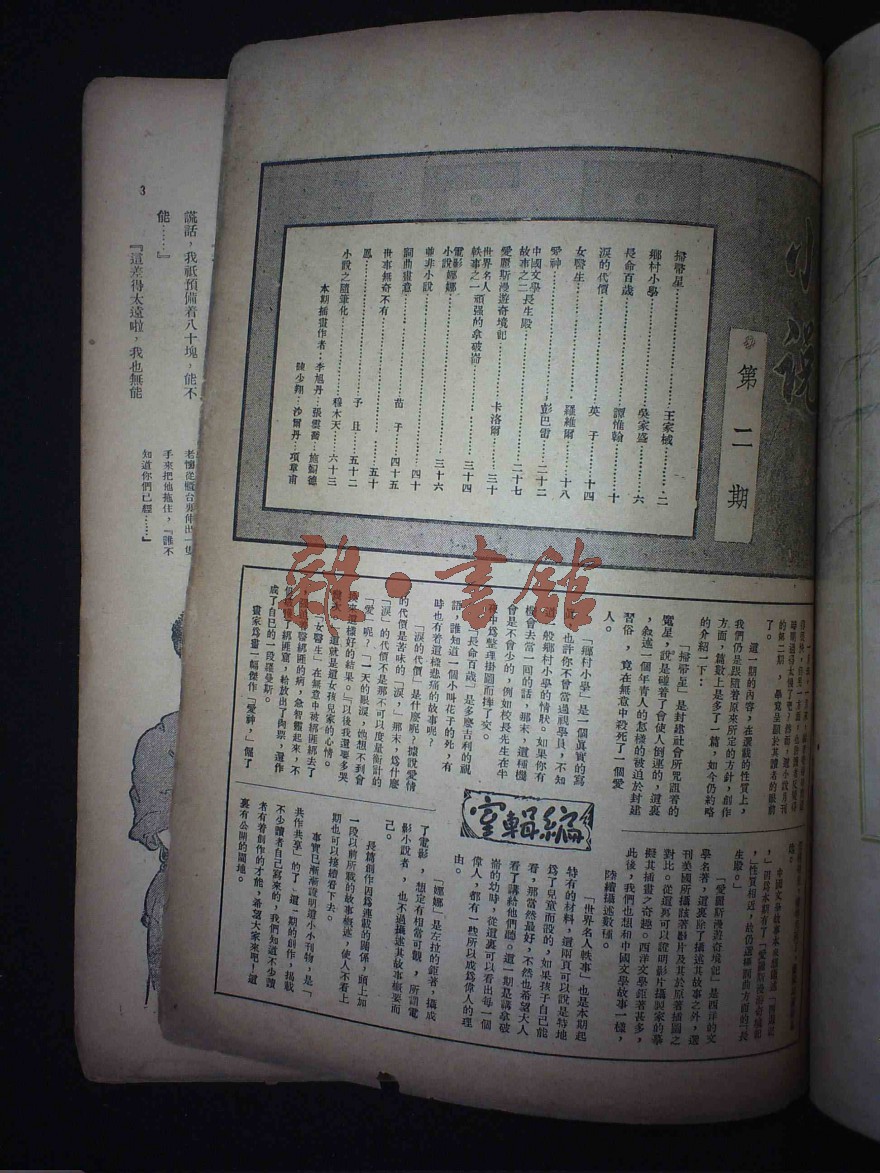 小說
第二期
掃帚星 王家棫 二
鄉村小學 吳家盛 六
長命百歲 譚惟翰 十
淚的代價 英子 十四
女醫生 羅維爾 十八
愛神 彭巴雷 二十二
中國文學故事之二 長生殿 二十七
愛麗斯漫遊奇境記 卡洛爾 三十
世界名人軼事之一 頑强的拿破崙 三十四
電影小說 娜娜 三十六
華非小說 四十
詞曲畫意 苗子 四十五
世事無奇不有 五十
鳳 予且 五十二
小說之隨筆化 穆木天 六十三
本期插畫作者
李旭丹 張雲喬 施錫德
陳少翔 沙爾丹 項章甫
編輯室
的第二期,畢竟呈顯於其讀者的眼前
了。
這一期的內容,在選載的性質上,
我們仍是跟隨着原來所定的方針,創作
方面,篇數上是多了一篇,如今仍約略
的介紹一下:
「掃帚星」是封建社會所咒詛着的
魘星,說是碰着了會使人倒運的,這裏
,叙述一個年青人的怎樣的被迫於封建
習俗,竟在無意中殺死了一個愛
人。
「鄉村小學」是一個眞實的寫
也許你不曾當過視學員,不知
道一般鄉村小學的情狀。如果你有
機會去當一回的話,那末,這種機
會是不會少的,例如校長先生在半
夜中爲整理掛圖而摔了交。
「長命百歲」是多麽吉利的視
語,誰知道一個小叫花子的死,有
時也有着這樣悲痛的故事呢?
「淚的代價」是什麽呢?據說愛情
的代價是苦味的「淚,」那末,爲什麽
「淚」的代價不是那不可以度量衡計的
「愛」呢?「一天的眼淚,她想不到會
換來這樣好的結果。『以後我還要多哭
幾次』」這就是這女孩兒家的心情。
「女醫生」在無意中被綁匪綁去了
,因爲着醫綁匪的病,急智驟起來,不
但破獲了綁匪窟,給放出了肉票,還作
成了自己的一段羅曼斯。
畫家爲畫一幅傑作「愛神,」僱了
中國文學故事本來想續述「西廂記
,」因爲本期有了「愛麗斯漫遊奇境記
,」性質相近,故仍選擇詞曲方面的「長
生殿。」
「愛麗斯漫遊奇境記」是西洋的文
學名著,這裏除了描述其故事之外,還
刊美國所攝該著影片及其於原著插圖之
對比。從這裏可以證明影片攝製家的摹
擬其插畫之奇趣。西洋文學鉅著甚多,
此後,我們也想和中國文學故事一樣,
陸續描述數種。
「世界名人軼事」也是本期起
特有的材料,這兩頁可以說是特地
爲了兒童而設的,如果孩子自己能
看,那當然最好,不然也希望大人
看了講給他們聽。這一期是講拿破
崙的幼時,從這裏可以看出每一個
偉人,都有一些所以成爲偉人的理
由。
「娜娜」是左拉的鉅著,攝成
了電影,想定有相當可觀,所謂電
影小說者,也不過描述其故事概要而
已。
長篇創作因爲連載的關係,頭上加
一段以前所載的故事槪述,使人不看上
期也可以接續看下去。
事實已漸漸證明這小小刊物,是「
共作共享」的了,這一期的創作,揭載
不少讀者自己寫來的,我們知道不少讀
者有着創作的才能,希望大家來吧!這
裏有公開的園地。
3
謊話,我祗預備着八十塊,能不
能……』
『這差得太遠啦,我也無能
老懷從櫃台央伸出一隻
手來把他拖住,『誰不
知道你們已經……』
雜·書館